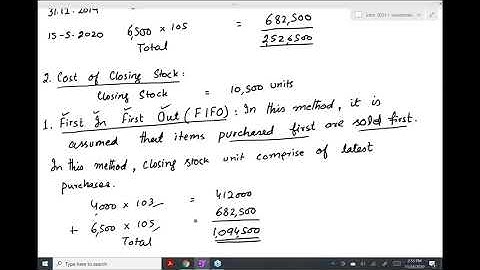 31.12.2019 =
15-5-2020 6,500 × 105 = 682,500
Total 2,526,500
2. Cost of Closing Stock:
Closing Stock = 10,500 units
1. First In First Out (FIFO): In this method, it is
assumed that items purchased first are sold first.
In this method, closing stock unit comprise of latest
purchases.
4000 × 103 = 412000
+ 6,500 × 105 = 682,500
Total 1,094,500
Type here to search
2:55 PM